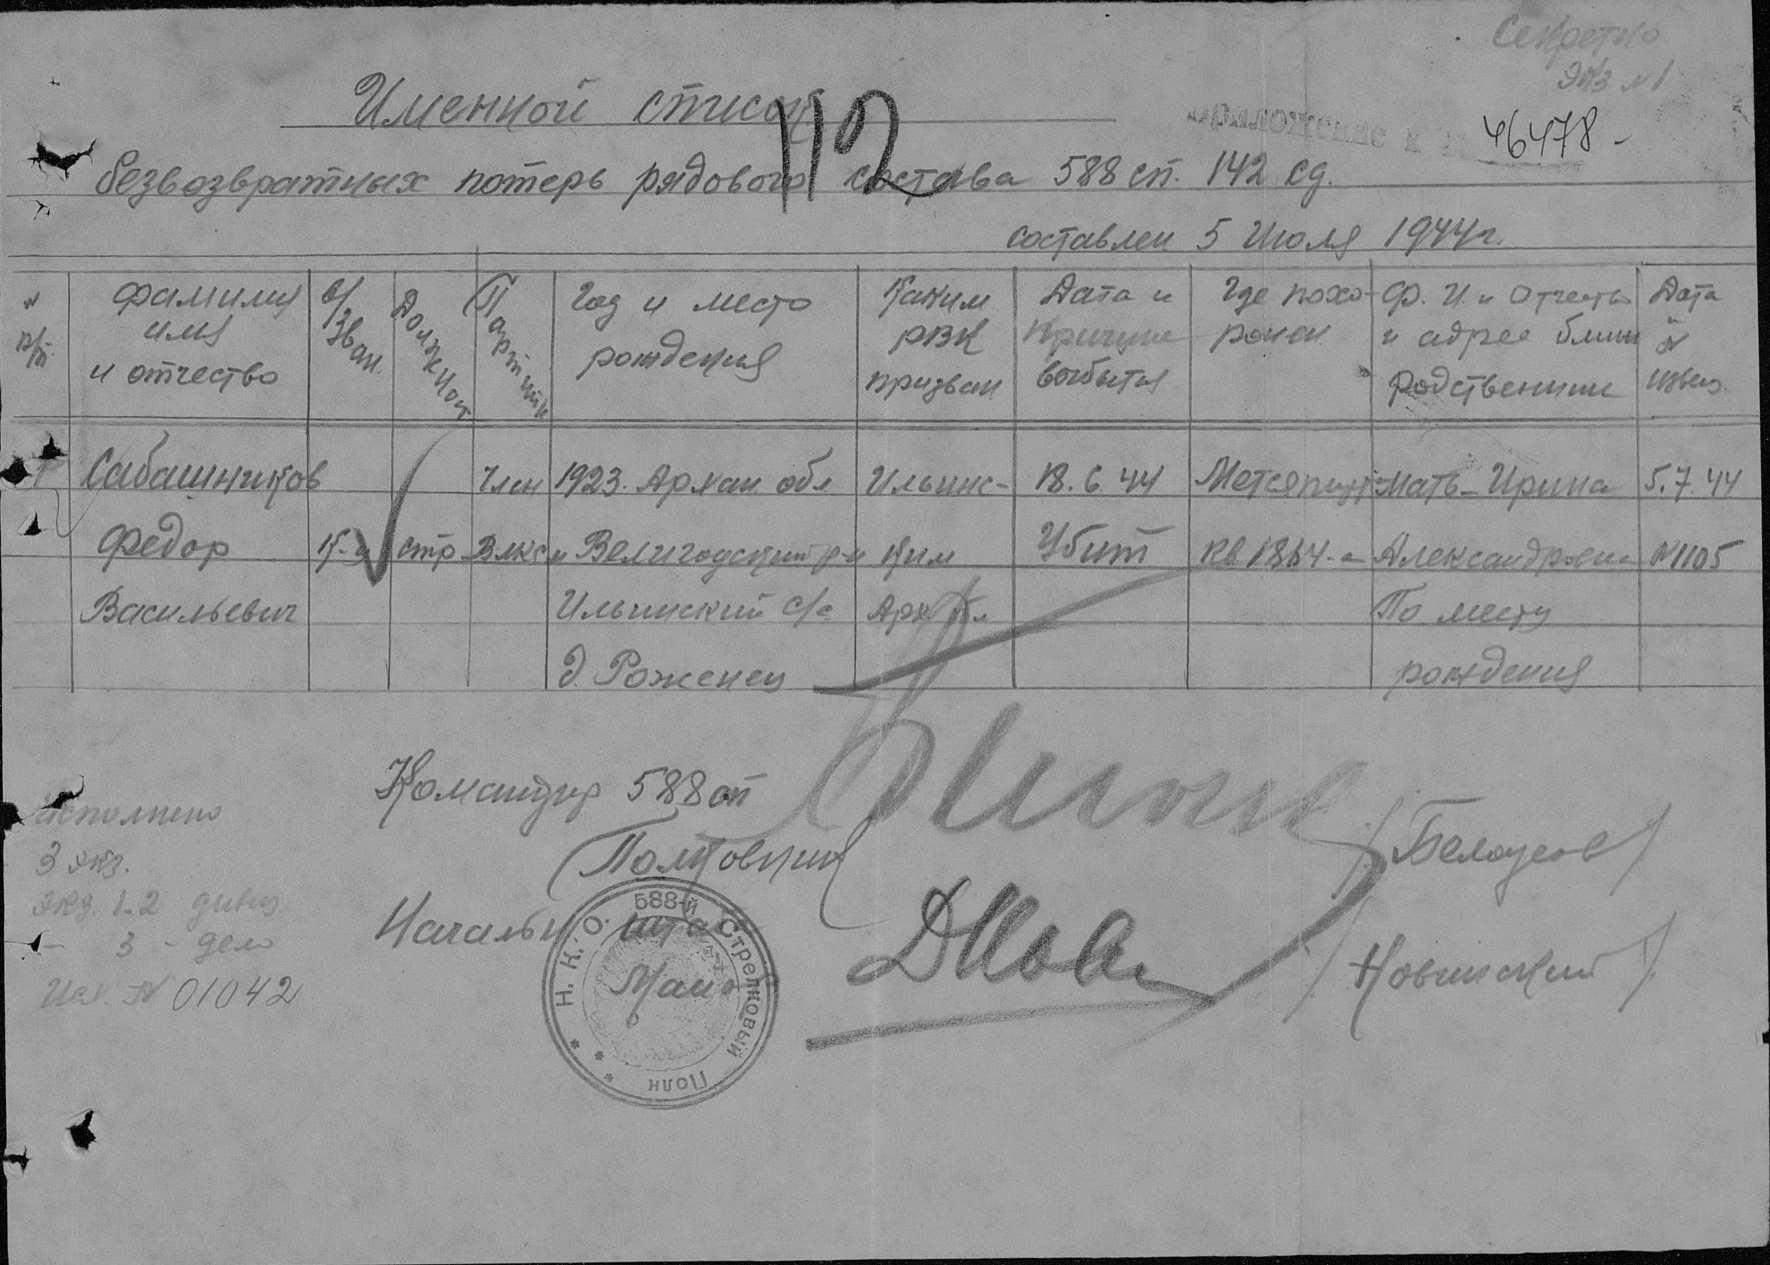 Секретно
Экз №1
Приложение к
46478-
Именной список
112
безвозвратных потерь рядового состава 588 сп. 142 сд.
составлен 5 Июля 1944г.
№ п/п. Фамилия имя и отчество в/зван. Должност Партийн Год и место рождения Каким РВК призван Дата и причина выбытия Где похоронен Ф. И. и Отчество и адрес ближ родственник Дата и № извещ.
1 Сабашников Член 1923. Архан. обл Ильинс- 18.6.44 мать - Ирина 5.7.44
Федор к-ц стр. Влксм Велигодский р-н ким Убит кв 1864-а Александровна №1105
Васильевич Ильинский с/с Арх обл По месту
д. Роженец рождения
Командир 588 сп
Полковник /Белоусов/
Начальн штаба
Майор /Новинский/
Исполнено
3 экз.
экз. 1-2 дивиз
- 3 - дело
Исх. № 01042
Н. К. О. 588-й Стрелковый Полк